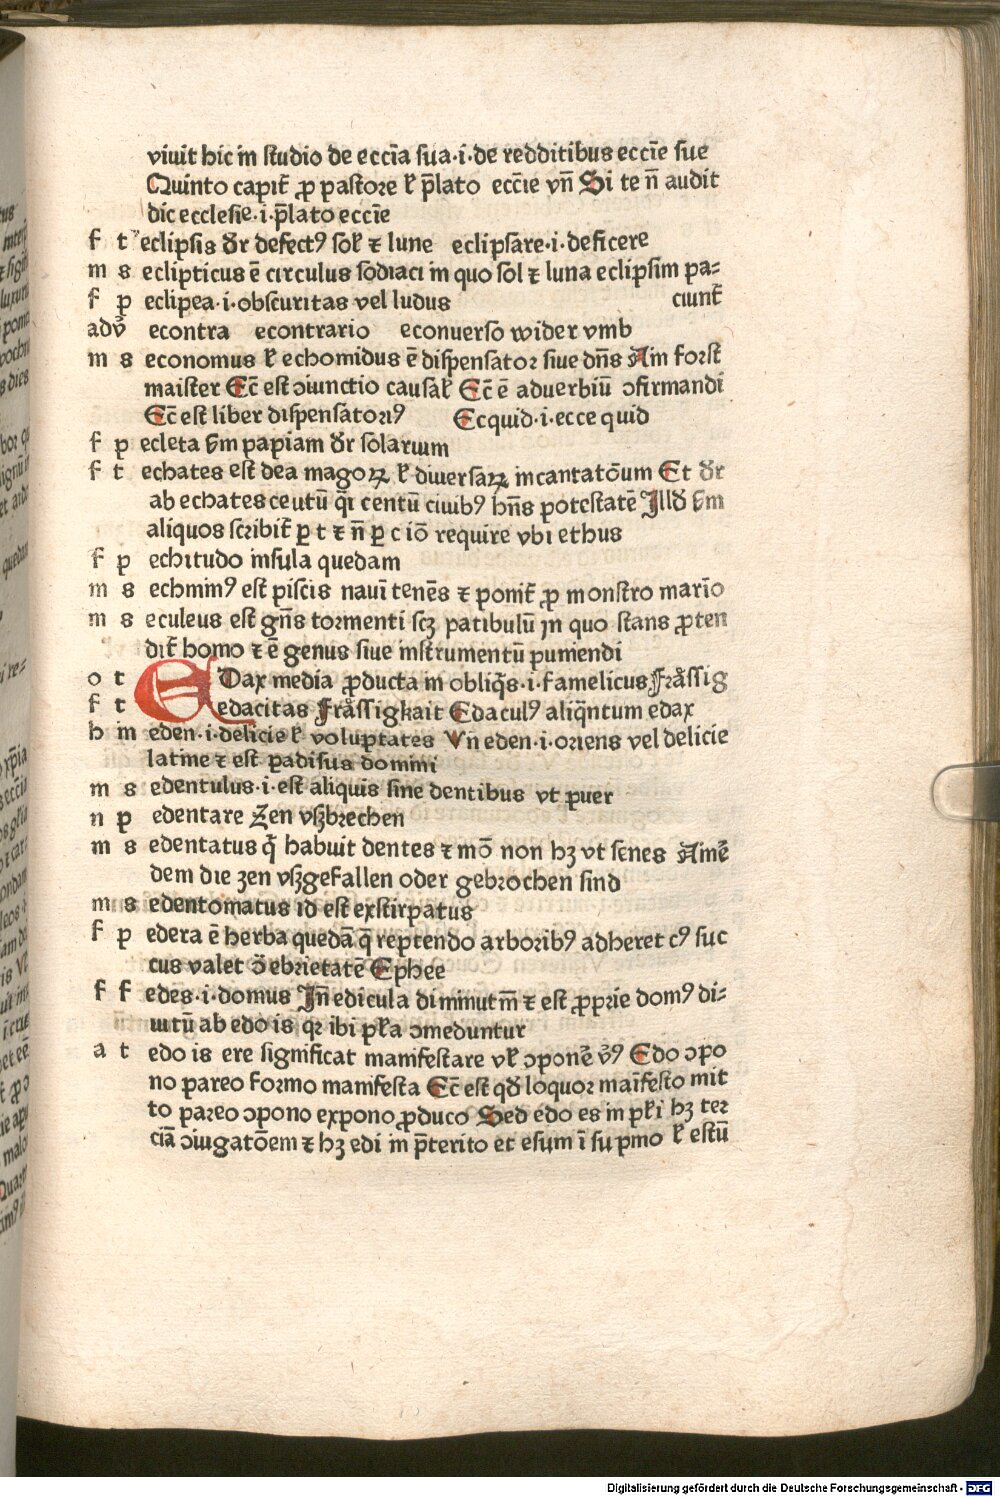 viuit hic in studio de eccīa sua·i·de redditibus eccīe sue
Quinto capit̄ ꝓ pastore ł p̄lato eccīe vn̄ Si te n̄ audit
dic ecclesie·i·p̄lato eccīe
f t eclipsis dr̄ defectꝰ soł ⁊ lune eclipsare·i·deficere
m s eclipticus ē circulus sodiaci in quo sol ⁊ luna eclipsim pa-
f p eclipea·i·obscuritas vel ludus ciunt̄
adv̄ econtra econtrario econuerso wider vmb
m s economus ł echomidus ē dispensator siue dn̄s Ain forst
maister Ec̄ est ɔiunctio causał Ec̄ ē aduerbiū ɔfirmandi
Ec̄ est liber dispensatoriꝰ Ecquid·i·ecce quid
f p ecleta s̄m papiam dr̄ solarium
f t echates est dea magoꝝ ł diuersaꝝ incantatōum Et dr̄
ab echates ceutū q̄i centū ciuibꝰ hn̄s potestatē Illd̄ s̄m
aliquos scribit̄ ꝑ t ⁊ n̄ ꝑ c iō require vbi ethus
f p echitudo insula quedam
m s echminꝰ est piscis naui tenēs ⁊ ponit̄ ꝓ monstro mario
m s eculeus est gn̄s tormenti scꝫ patibulū in quo stans ꝓten
dit̄ homo ⁊ ē genus siue instrumentū puniendi
o t EDax media ꝓducta in obliq̄s·i·famelicus Fråssig
f t edacitas Fråssigkait Edaculꝰ aliq̄ntum edax
h m eden·i·delicie ł voluptates Vn eden·i·oriens vel delicie
latine ⁊ est padisus domini
m s edentulus·i·est aliquis sine dentibus vt puer
n p edentare Zen vßbrechen
m s edentatus q̄ habuit dentes ⁊ mō non hꝫ vt senes Ainē
dem die zen vßgefallen oder gebrochen sind
m s edentomatus id est exstirpatus
f p edera ē herba quedā q̄ reptendo arboribꝰ adheret cꝰ suc
cus valet ɔ̄ ebrietatē Ephee
f f edes·i·domus In̄ edicula diminut̄m ⁊ est ꝓprie domꝰ di-
uitū ab edo is qr ibi pł̄a ɔmeduntur
a t edo is ere significat manifestare vł ɔponē v̄ꝰ Edo ɔpo
no pareo formo manifesta Ec̄ est qd̄ loquor maīfesto mit
to pareo ɔpono expono ꝓduco Sed edo es in pł̄i hꝫ ter
ciā ɔiugatōem ⁊ hꝫ edi in p̄terito et esum ī su pmo ł estū
Digitalisierung gefördert durch die Deutsche Forschungsgemeinschaft - DFG